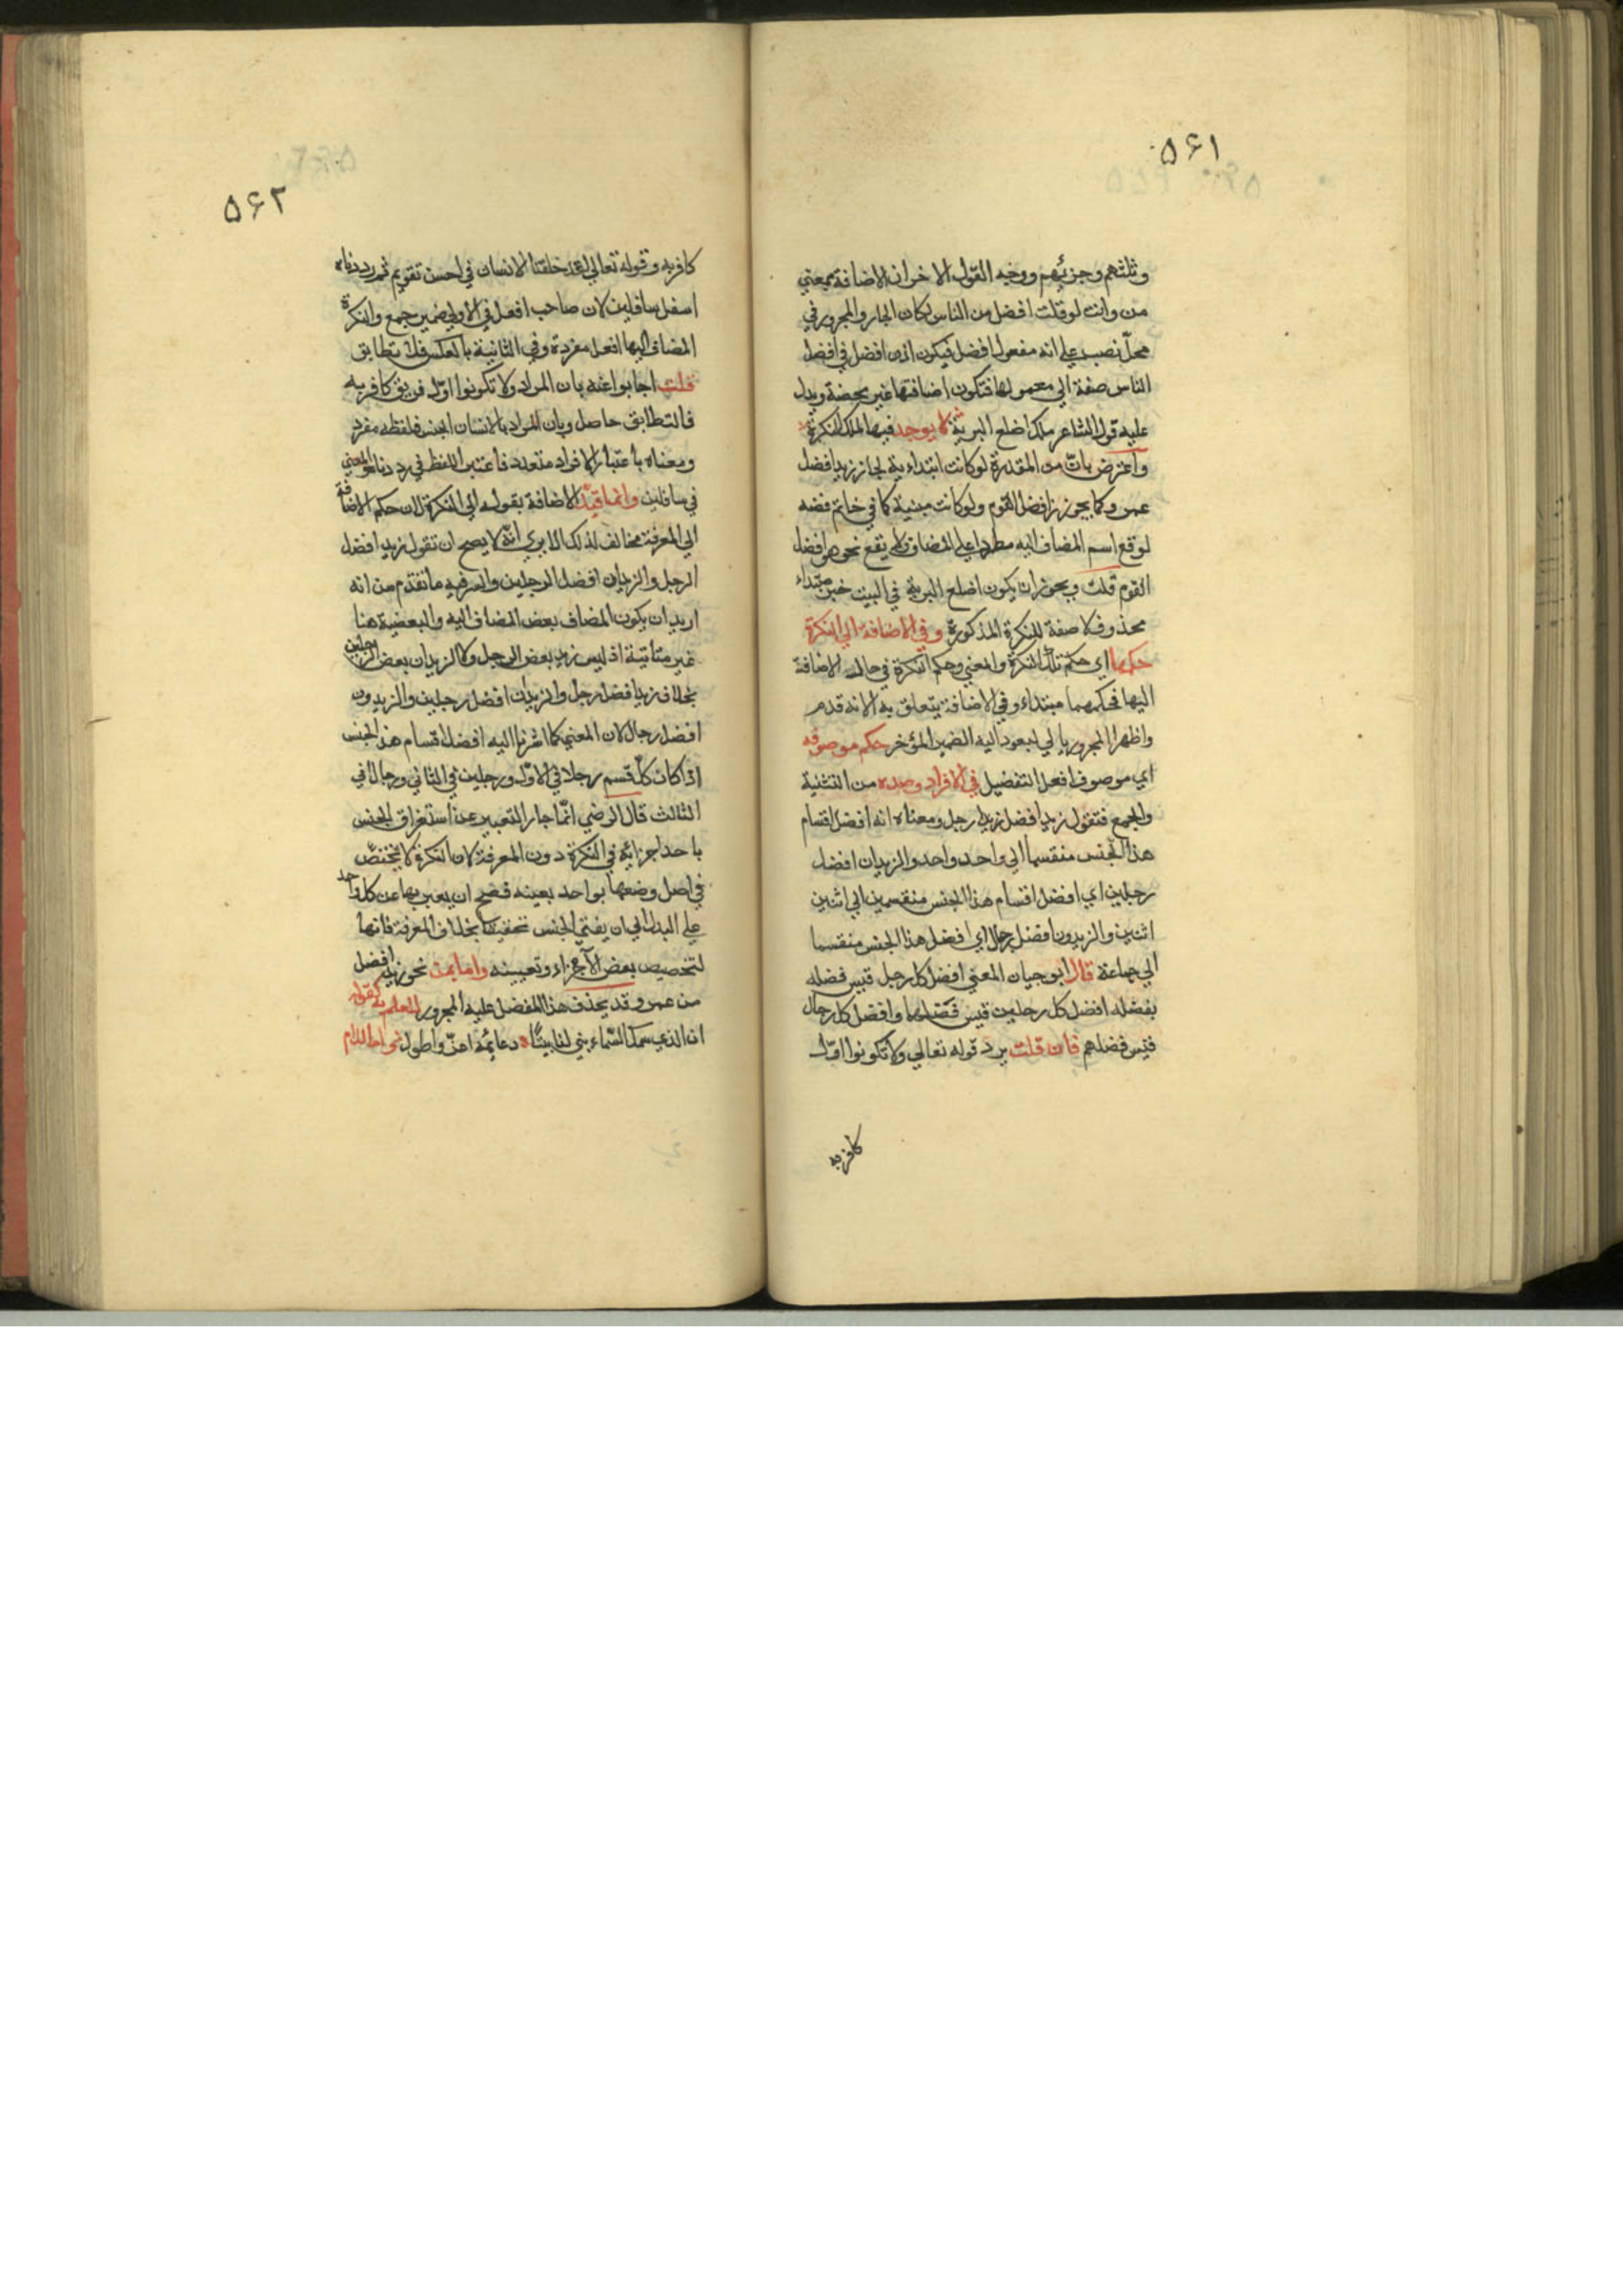 ۵۶۱
وثلثهم وجزئهم ووجه القول الاخران الاضافة بمعني
من وانت لو قلت افضل من الناس لكان الجار والمجرور في
محل نصب علي انه مفعول لافضل فيكون اذن افضل في افضل
الناس صفة الي معمولها فتكون اضافتها غير محضة ويدل
عليه قول الشاعر ملك اضلع البرية لا يوجد فيها الملك النكرة
واعترض بان من المقدرة لو كانت ابتداءية لجاز زيد افضل
عمرو كما يجوز زيد افضل القوم ولو كانت مبنية كما في خاتم فضه
لوقع اسم المضاف اليه مطردا علي المضاف ولم يقع نحو هو افضل
القوم قلت ويجوز ان يكون اضلع البرية في البيت خبر مبتداء
محذوف لا صفة للنكرة المذكورة وفي الاضافة الي النكرة
حكمها اي حكم تلك النكرة والمعني وحكم النكرة في حالة الاضافة
اليها فحكمهما مبتداء وفي الاضافة يتعلق به الا انه قدم
واظهر المجرور بالي ليعود اليه الضمير المؤخر حكم موصوفه
اي موصوف افعل التفضيل في الافراد وضده من التثنية
والجمع فتقول زيد افضل رجل ومعناه انه افضل اقسام
هذا الجنس منقسما الي واحد واحد والزيدان افضل
رجلين اي افضل اقسام هذا الجنس منقسمين الي اثنين
اثنين والزيدون افضل رجال اي افضل هذا الجنس منقسما
الي جماعة قال ابو حيان المعني افضل كل رجل قيس فضله
بفضله افضل كل رجلين قيس فضلهما وافضل كل رجال
قيس فضلهم فان قلت يرد قوله تعالي ولا تكونوا اول
كافر به
۵۶۲
كافر به وقوله تعالي لقد خلقنا الانسان في احسن تقويم ثم رددناه
اسفل سافلين لان صاحب افعل في الاولي ضمير جمع والنكرة
المضاف اليها افعل مفردة وفي الثانية بالعكس فلا تطابق
قلت اجابوا عنه بان المراد ولا تكونوا اول فريق كافر به
فالتطابق حاصل وبان المراد بالانسان الجنس فلفظه مفرد
ومعناه باعتبار الافراد متعدد فاعتبر اللفظ في رددناه والمعني
في سافلين وانما قيد الاضافة بقوله الي النكرة لان حكم الاضافة
الي المعرفة مخالف لذلك الا يري انه لا يصح ان تقول زيد افضل
الرجل والزيدان افضل الرجلين والسر فيه ما تقدم من انه
اريد ان يكون المضاف بعض المضاف اليه والبعضية هنا
غير متأتية اذ ليس زيد بعض الرجل ولا الزيدان بعض الرجلين
بخلاف زيد افضل رجل والزيدان افضل رجلين والزيدون
افضل رجال لان المعني كما اشرنا اليه افضل اقسام هذا الجنس
اذا كان كل قسم رجلا في الاول ورجلين في الثاني ورجالا في
الثالث قال الرضي انما جاز التعبير عن استغراق الجنس
باحد اجزائه في النكرة دون المعرفة لان النكرة لا تختص
في اصل وضعها بواحد بعينه فصح ان يعبر بها عن كل واحد
علي البدل الي ان يفني الجنس تحقيقا بخلاف المعرفة فانها
لتخصيص بعض الاجزاء وتعيينه واما بمن نحو زيد افضل
من عمرو وقد يحذف هذا المفضل عليه المجرور للعلم به كقوله
ان الذي سمك السماء بني لنا بيتا دعائمه اعز واطول نحو اما اللام